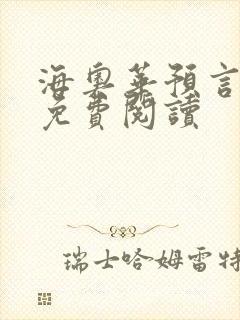 海奧華預言
免費閱讀
瑞士哈姆雷特